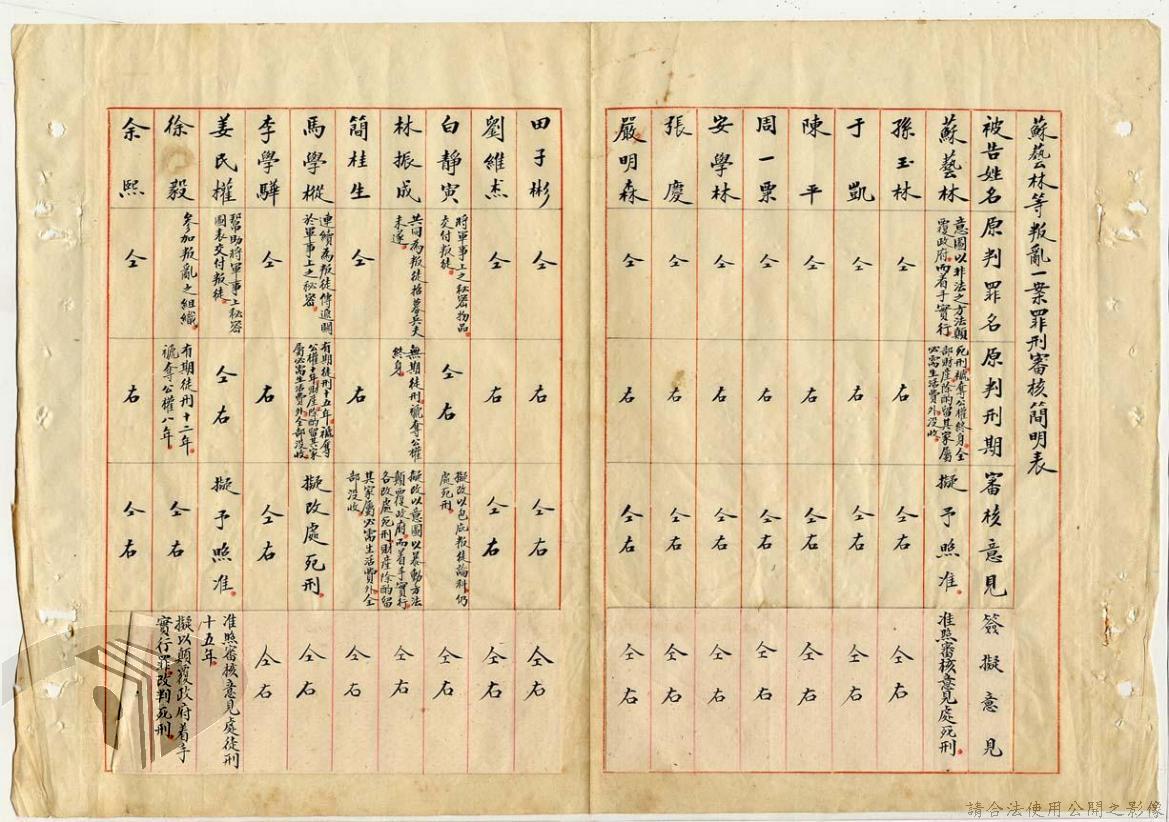 蘇藝林等叛亂一案罪刑審核簡明表
被告姓名 原判罪名 原判刑期 審核意見 簽擬意見
蘇藝林
意圖以非法之方法顛
覆政府而着手實行
死刑褫奪公權終身全
部財產除酌留其家屬
必需生活費外沒收
擬予照准
准照審核意見處死刑
孫玉林 仝右 仝右 仝右
于凱 仝右 仝右 仝右
陳平 仝右 仝右 仝右
周一粟 仝右 仝右 仝右
安學林 仝右 仝右 仝右
張慶 仝右 仝右 仝右
嚴明森 仝右 仝右 仝右
田子彬 仝右 仝右 仝右
劉維杰 仝右 仝右 仝右
白靜寅
將軍事上之秘密物品
交付叛徒
仝右
擬改以包庇叛徒論科仍
處死刑
仝右
林振成
共同為叛徒招募兵夫
未遂
無期徒刑褫奪公權
終身
擬改以意圖以暴動方法
顛覆政府而着手實行
各改處死刑財產除酌留
其家屬必需生活費外全
部沒收
仝右
簡桂生 仝右 仝右
馬學樅
連續為叛徒傳遞關
於軍事上之秘密
有期徒刑十五年褫奪
公權十年財產除酌留其家
屬必需生活費外全部沒收
擬改處死刑
仝右
李學驊 仝右 仝右 仝右
姜民權
幫助將軍事上秘密
圖表交付叛徒
仝右
擬予照准
准照審核意見處徒刑
十五年
徐毅
參加叛亂之組織
有期徒刑十二年
褫奪公權八年
仝右
擬以顛覆政府着手
實行罪改判死刑
余熙 仝右 仝右
請合法使用公開之影像